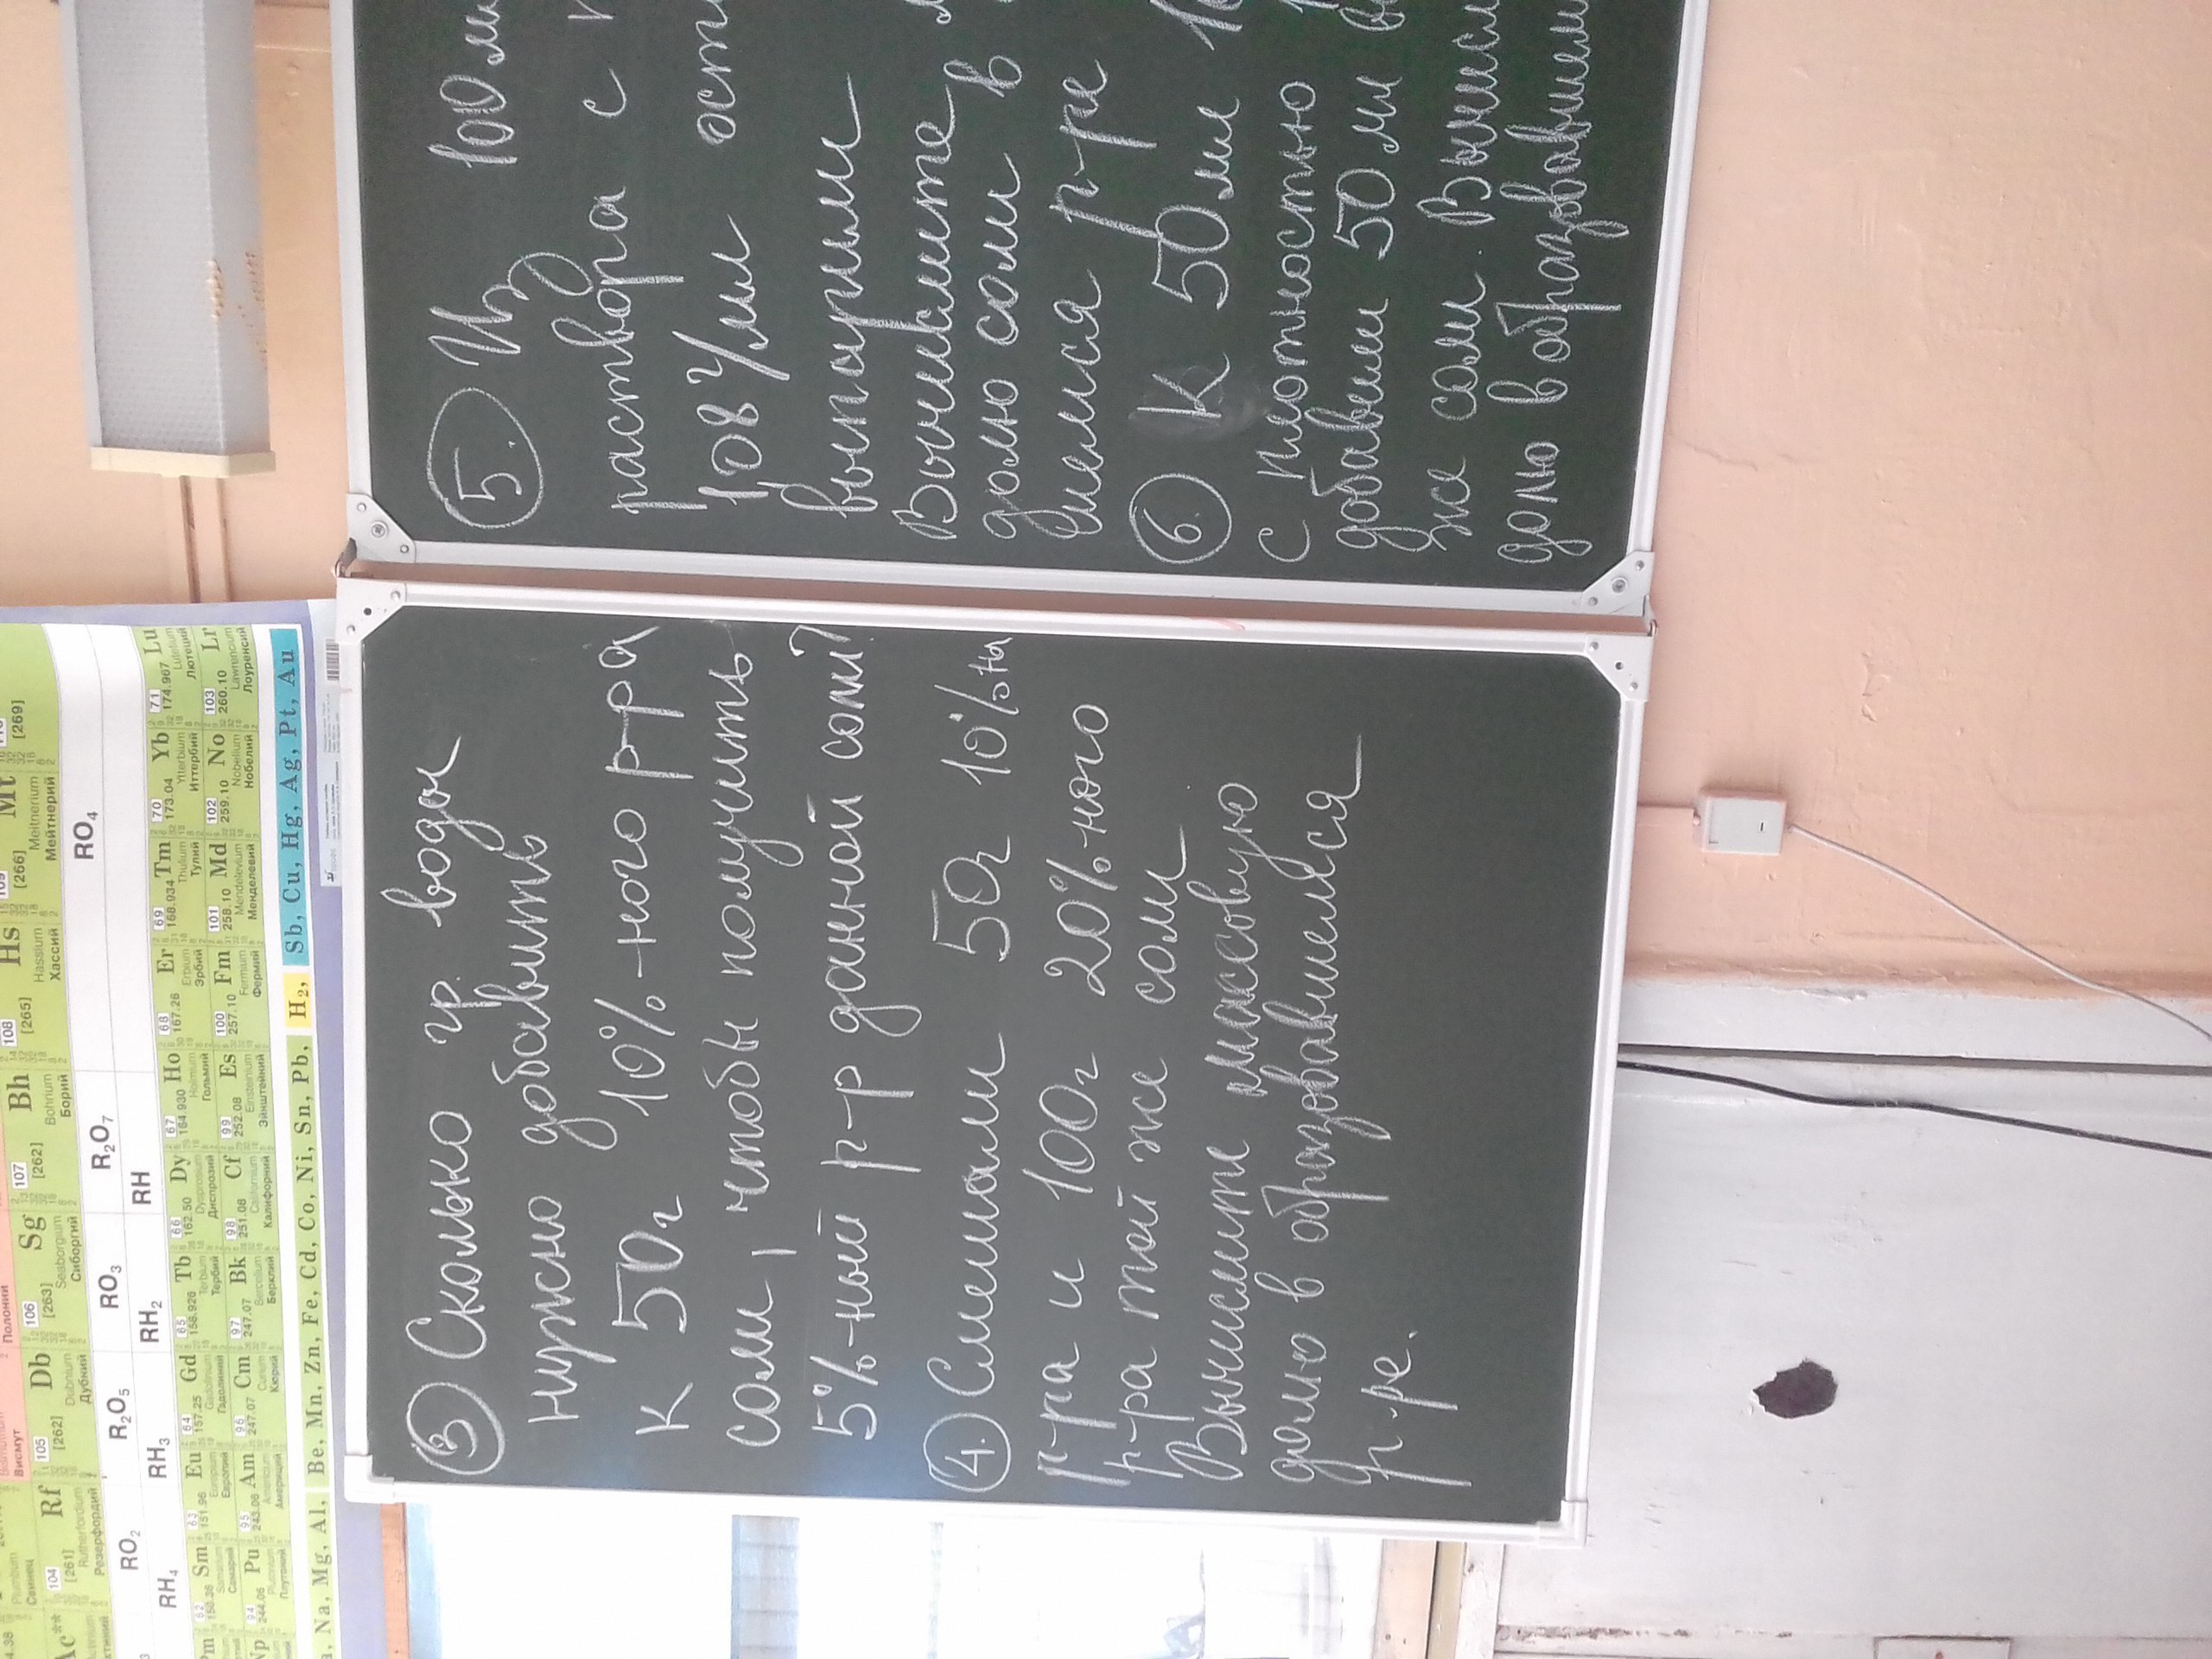 ③ Сколько гр. воды
нужно добавить
к 50г 10%-ного р-ра
соли, чтобы получить
5%-ный р-р данной соли?
④. Смешали 50г 10%-н
р-ра и 100г 20%-ного
р-ра той же соли
Вычислите массовую
долю в образовавшемся
р-ре.
⑤. Из 100 мл
раствора с
1,08 г/мл
выпарили
долю соли в
р-ре
⑥ К 50 мл
с плотностью
добавили 50 мл
же соли.
долю в
RO4
R2O7
RO3
R2O5
RO2
RH
RH2
RH3
RH4
104 [261] Rf Rutherfordium Резерфордий
105 [262] Db Dubnium Дубний
106 [263] Sg Seaborgium Сиборгий
107 [262] Bh Bohrium Борий
108 [265] Hs Hassium Хассий
[266] Mt Meitnerium Мейтнерий
[269]
Полоний
Висмут
Свинец
62 150.36 Sm Самарий
63 151.96 Eu Europium Европий
64 157.25 Gd Gadolinium Гадолиний
65 158.926 Tb Terbium Тербий
66 162.50 Dy Dysprosium Диспрозий
67 164.930 Ho Holmium Гольмий
68 167.26 Er Erbium Эрбий
69 168.934 Tm Thulium Тулий
70 173.04 Yb Ytterbium Иттербий
71 174.967 Lu Lutetium Лютеций
94 244.06 Pu Плутоний
95 243.06 Am Америций
96 247.07 Cm Curium Кюрий
97 247.07 Bk Berkelium Берклий
98 251.08 Cf Californium Калифорний
99 252.08 Es Einsteinium Эйнштейний
100 257.10 Fm Fermium Фермий
101 258.10 Md Mendelevium Менделевий
102 259.10 No Nobelium Нобелий
103 260.10 Lr Lawrencium Лоуренсий
Na, Mg, Al, Be, Mn, Zn, Fe, Cd, Co, Ni, Sn, Pb, H2, Sb, Cu, Hg, Ag, Pt, Au